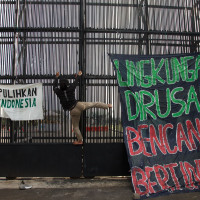 PULIHKAN
INDONESIA
LINGKUNGA
DRUSA
BENCAN
BERTIN